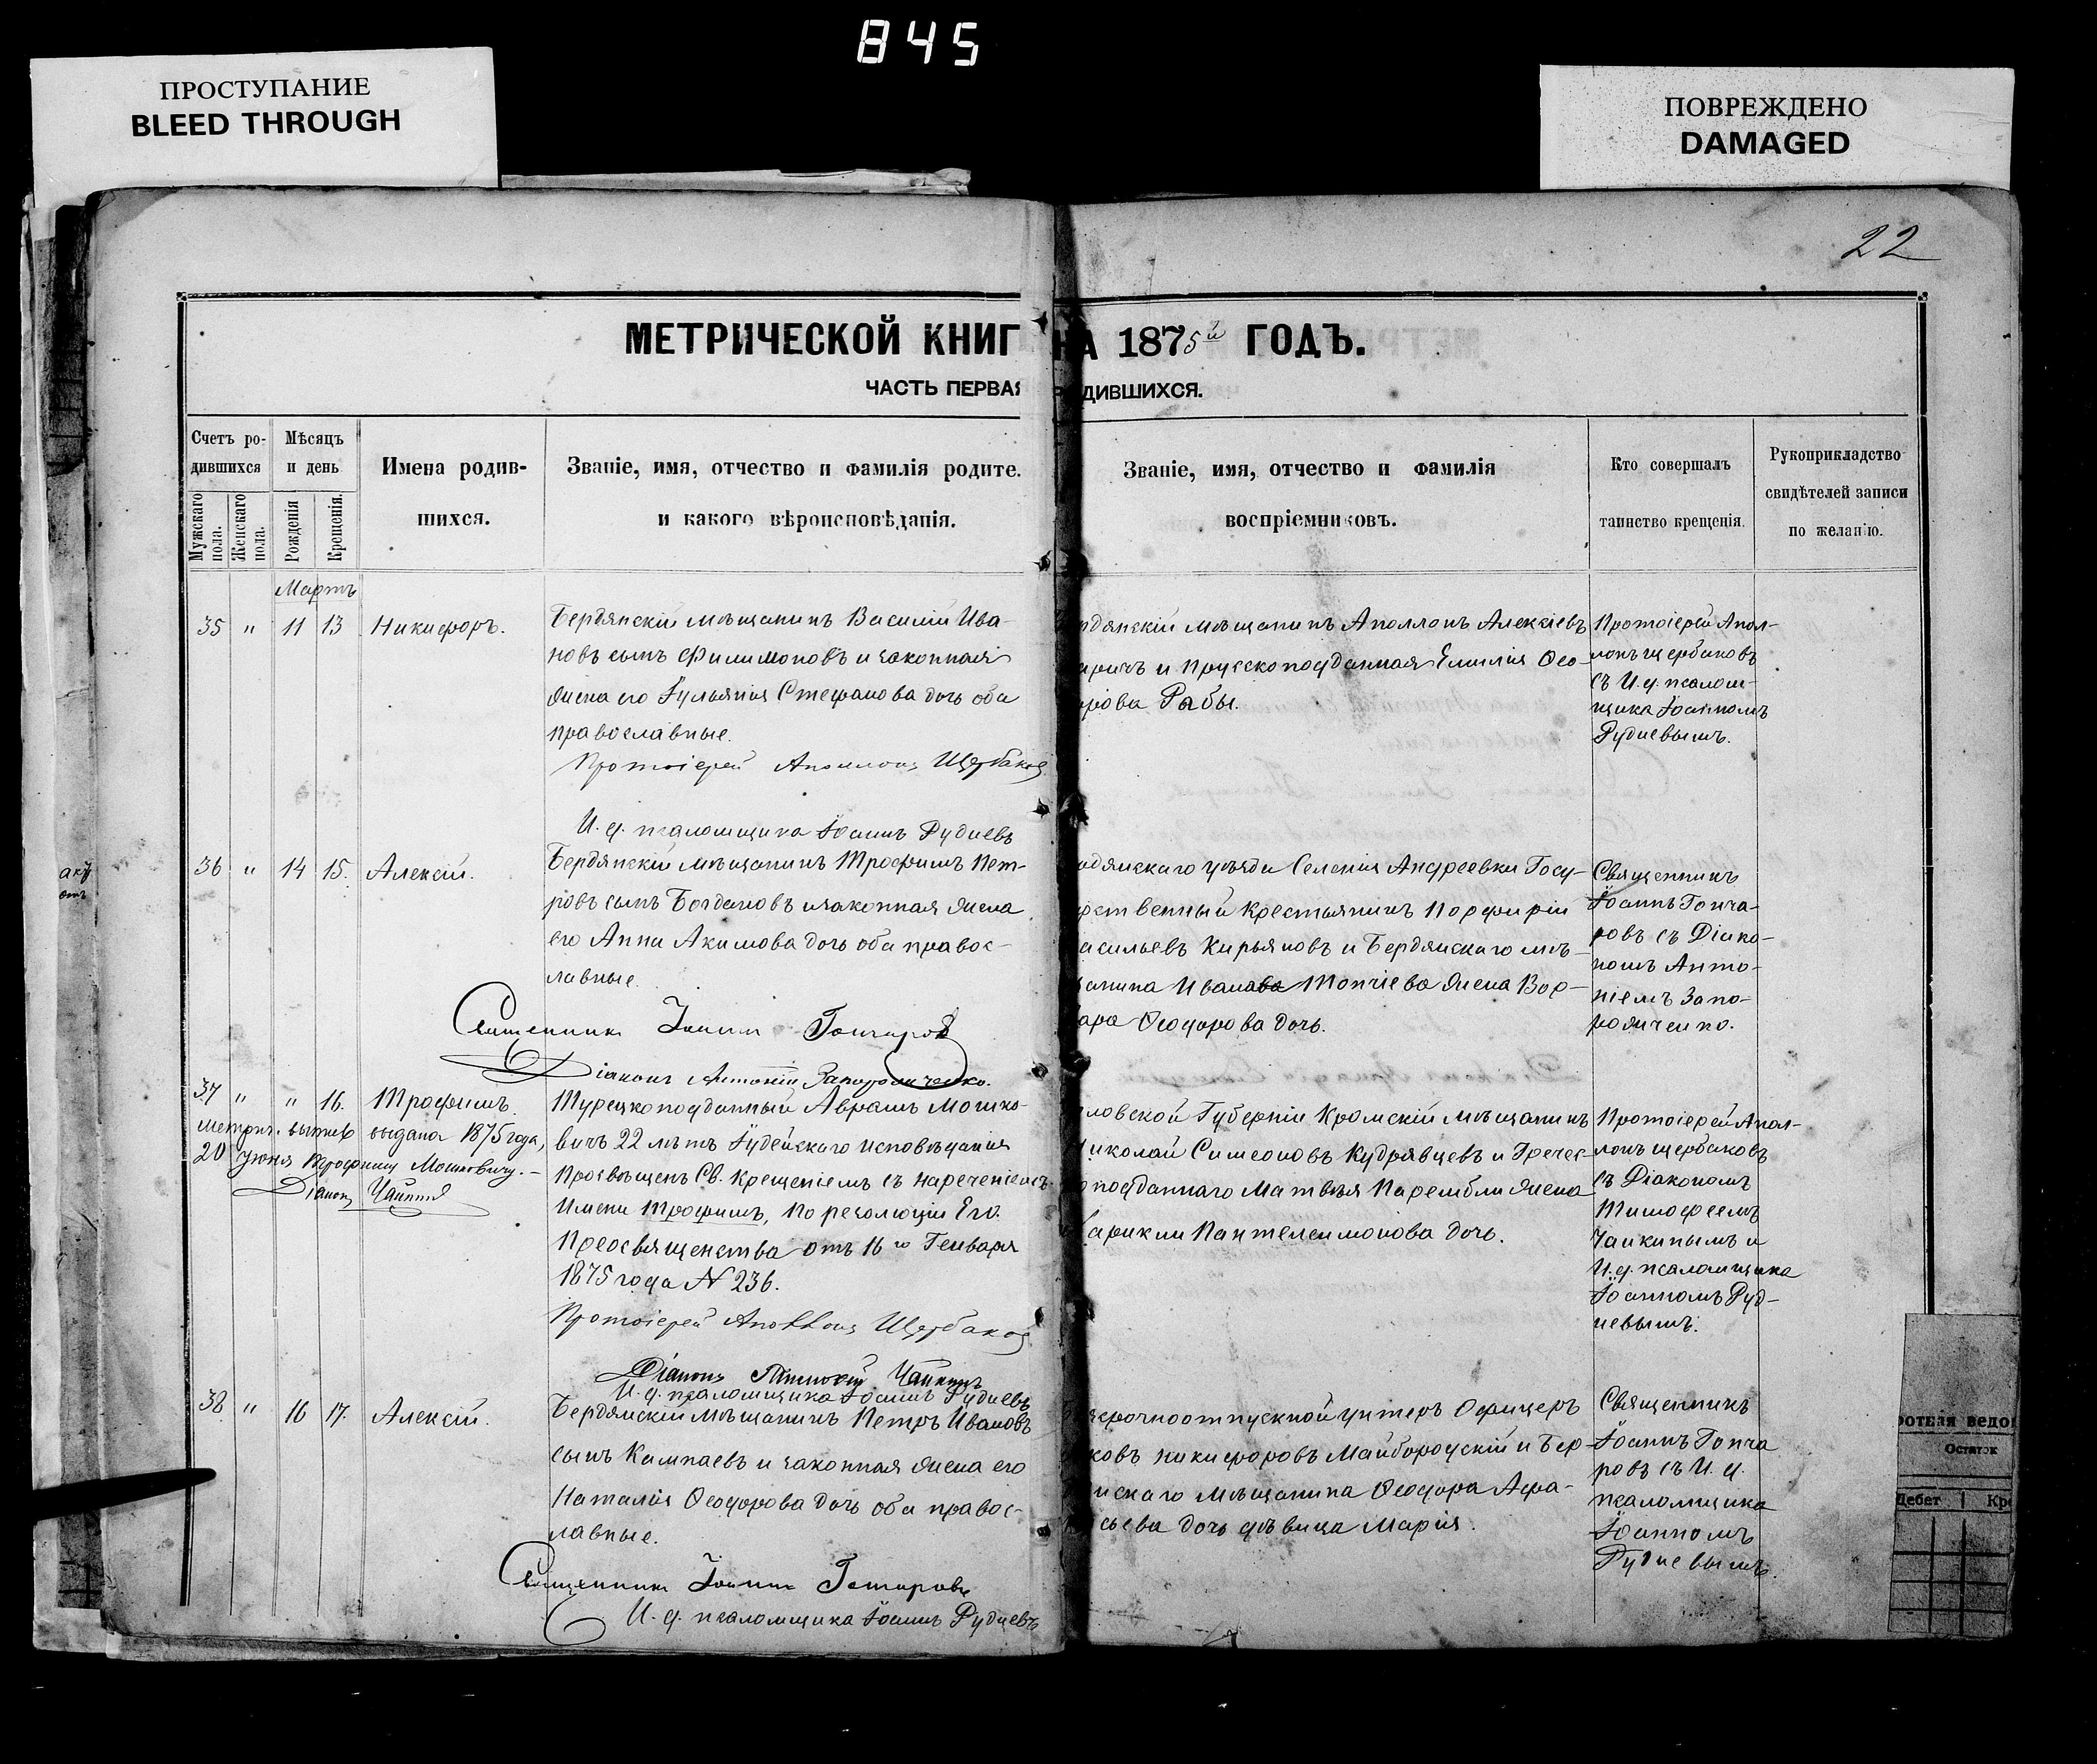 845
ПРОСТУПАНИЕ
BLEED THROUGH
ПОВРЕЖДЕНО
DAMAGED
22
МЕТРИЧЕСКОЙ КНИГ НА 1875й ГОДЪ.
ЧАСТЬ ПЕРВАЯ РОДИВШИХСЯ.
Счетъ ро-
дившихся
Мужскаго пола.
Женскаго пола.
Мѣсяцъ
и день
Рожденія
Крещенія.
Имена родив-
шихся.
Званіе, имя, отчество и фамилія родите.
и какого вѣроисповѣданія.
Званіе, имя, отчество и фамилія
воспріемниковъ.
Кто совершалъ
таинство крещенія.
Рукоприкладство
свидѣтелей записи
по желанію.
Мартъ
35 " 11 13 Никифоръ.
Бердянскій мѣщанинъ Василій Ива-
новъ сынъ Филимоновъ и законная
жена его Іульянія Стефанова дочь оба
православные.
Протоіерей Аполлонъ Щербаковъ
И. д. псаломщика Іоаннъ Рудневъ
рдянскій мѣщанинъ Аполлонъ Алексіевъ
аричъ и Прусскоподданная Емилія Ѳео-
орова Рабы.
Протоіерей Апол-
лонъ Щербаковъ
съ И. д. псалом-
щика Іоанномъ
Рудневымъ.
36 " 14 15. Алексій.
Бердянскій мѣщанинъ Трофимъ Пет-
ровъ сынъ Богдановъ и законная жена
его Анна Акимова дочь оба правос-
лавные.
Священникъ Іоаннъ Гончаровъ
Діаконъ Антоній Запорожченко.
рдянскаго уѣзда Селенія Андреевки Госу-
рственный Крестьянинъ Порфирій
асильевъ Кирьяновъ и Бердянскаго мѣ-
щанина Ивана Топчіева жена Вар-
вара Ѳеодорова дочь.
Священникъ
Іоаннъ Гонча-
ровъ съ Діако-
номъ Анто-
ніемъ Запо-
рожченко.
37 " " 16. Трофимъ.
Метрич. выпись выдана 1875 года,
20 Іюня Трофиму Мошковичу.-
Діаконъ Чайкинъ
Турецкоподданный Аврамъ Мошко-
вичъ 22 лѣтъ Іудейскаго исповѣданія
Просвѣщенъ Св. Крещеніемъ съ нареченіемъ
Имени Трофимъ, По резолюціи Его
Преосвященства отъ 16го Генваря
1875 года № 236.
Протоіерей Аполлонъ Щербаковъ
Діаконъ Тимоѳей Чайкинъ
И. д. псаломщика Іоаннъ Рудневъ
ловской Губерніи Кромскій мѣщанинъ
Николай Симеоновъ Кудрявцевъ и Гречес-
подданнаго Матвѣя Парембли жена
арикли Пантелеимонова дочь.
Протоіерей Апол-
лонъ Щербаковъ
съ Діакономъ
Тимофеемъ
Чайкинымъ и
И. д. псаломщика
Іоанномъ Руд-
невымъ.
38 " 16 17. Алексій.
Бердянскій мѣщанинъ Петръ Ивановъ
сынъ Камнаевъ и законная жена его
Наталія Ѳеодорова дочь оба правос-
лавные.
Священникъ Іоаннъ Гончаровъ
И. д. псаломщика Іоаннъ Рудневъ
срочноотпускной унтеръ Офицеръ
ковъ Никифоровъ Майбородскій и Бер-
нскаго мѣщанина Ѳеодора Афа-
сьева дочь дѣвица Марія.
Священникъ
Іоаннъ Гонча
ровъ съ И. д.
псаломщика
Іоанномъ
Рудневымъ.
Остаток
Дебет